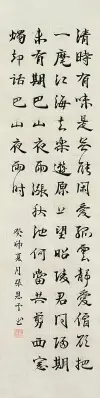 清時有味是無能閑愛孤雲靜愛僧欲把
一麾江海去樂遊原上望昭陵君問歸期
未有期巴山夜雨漲秋池何當共剪西窗
燭却話巴山夜雨時
癸卯夏月張